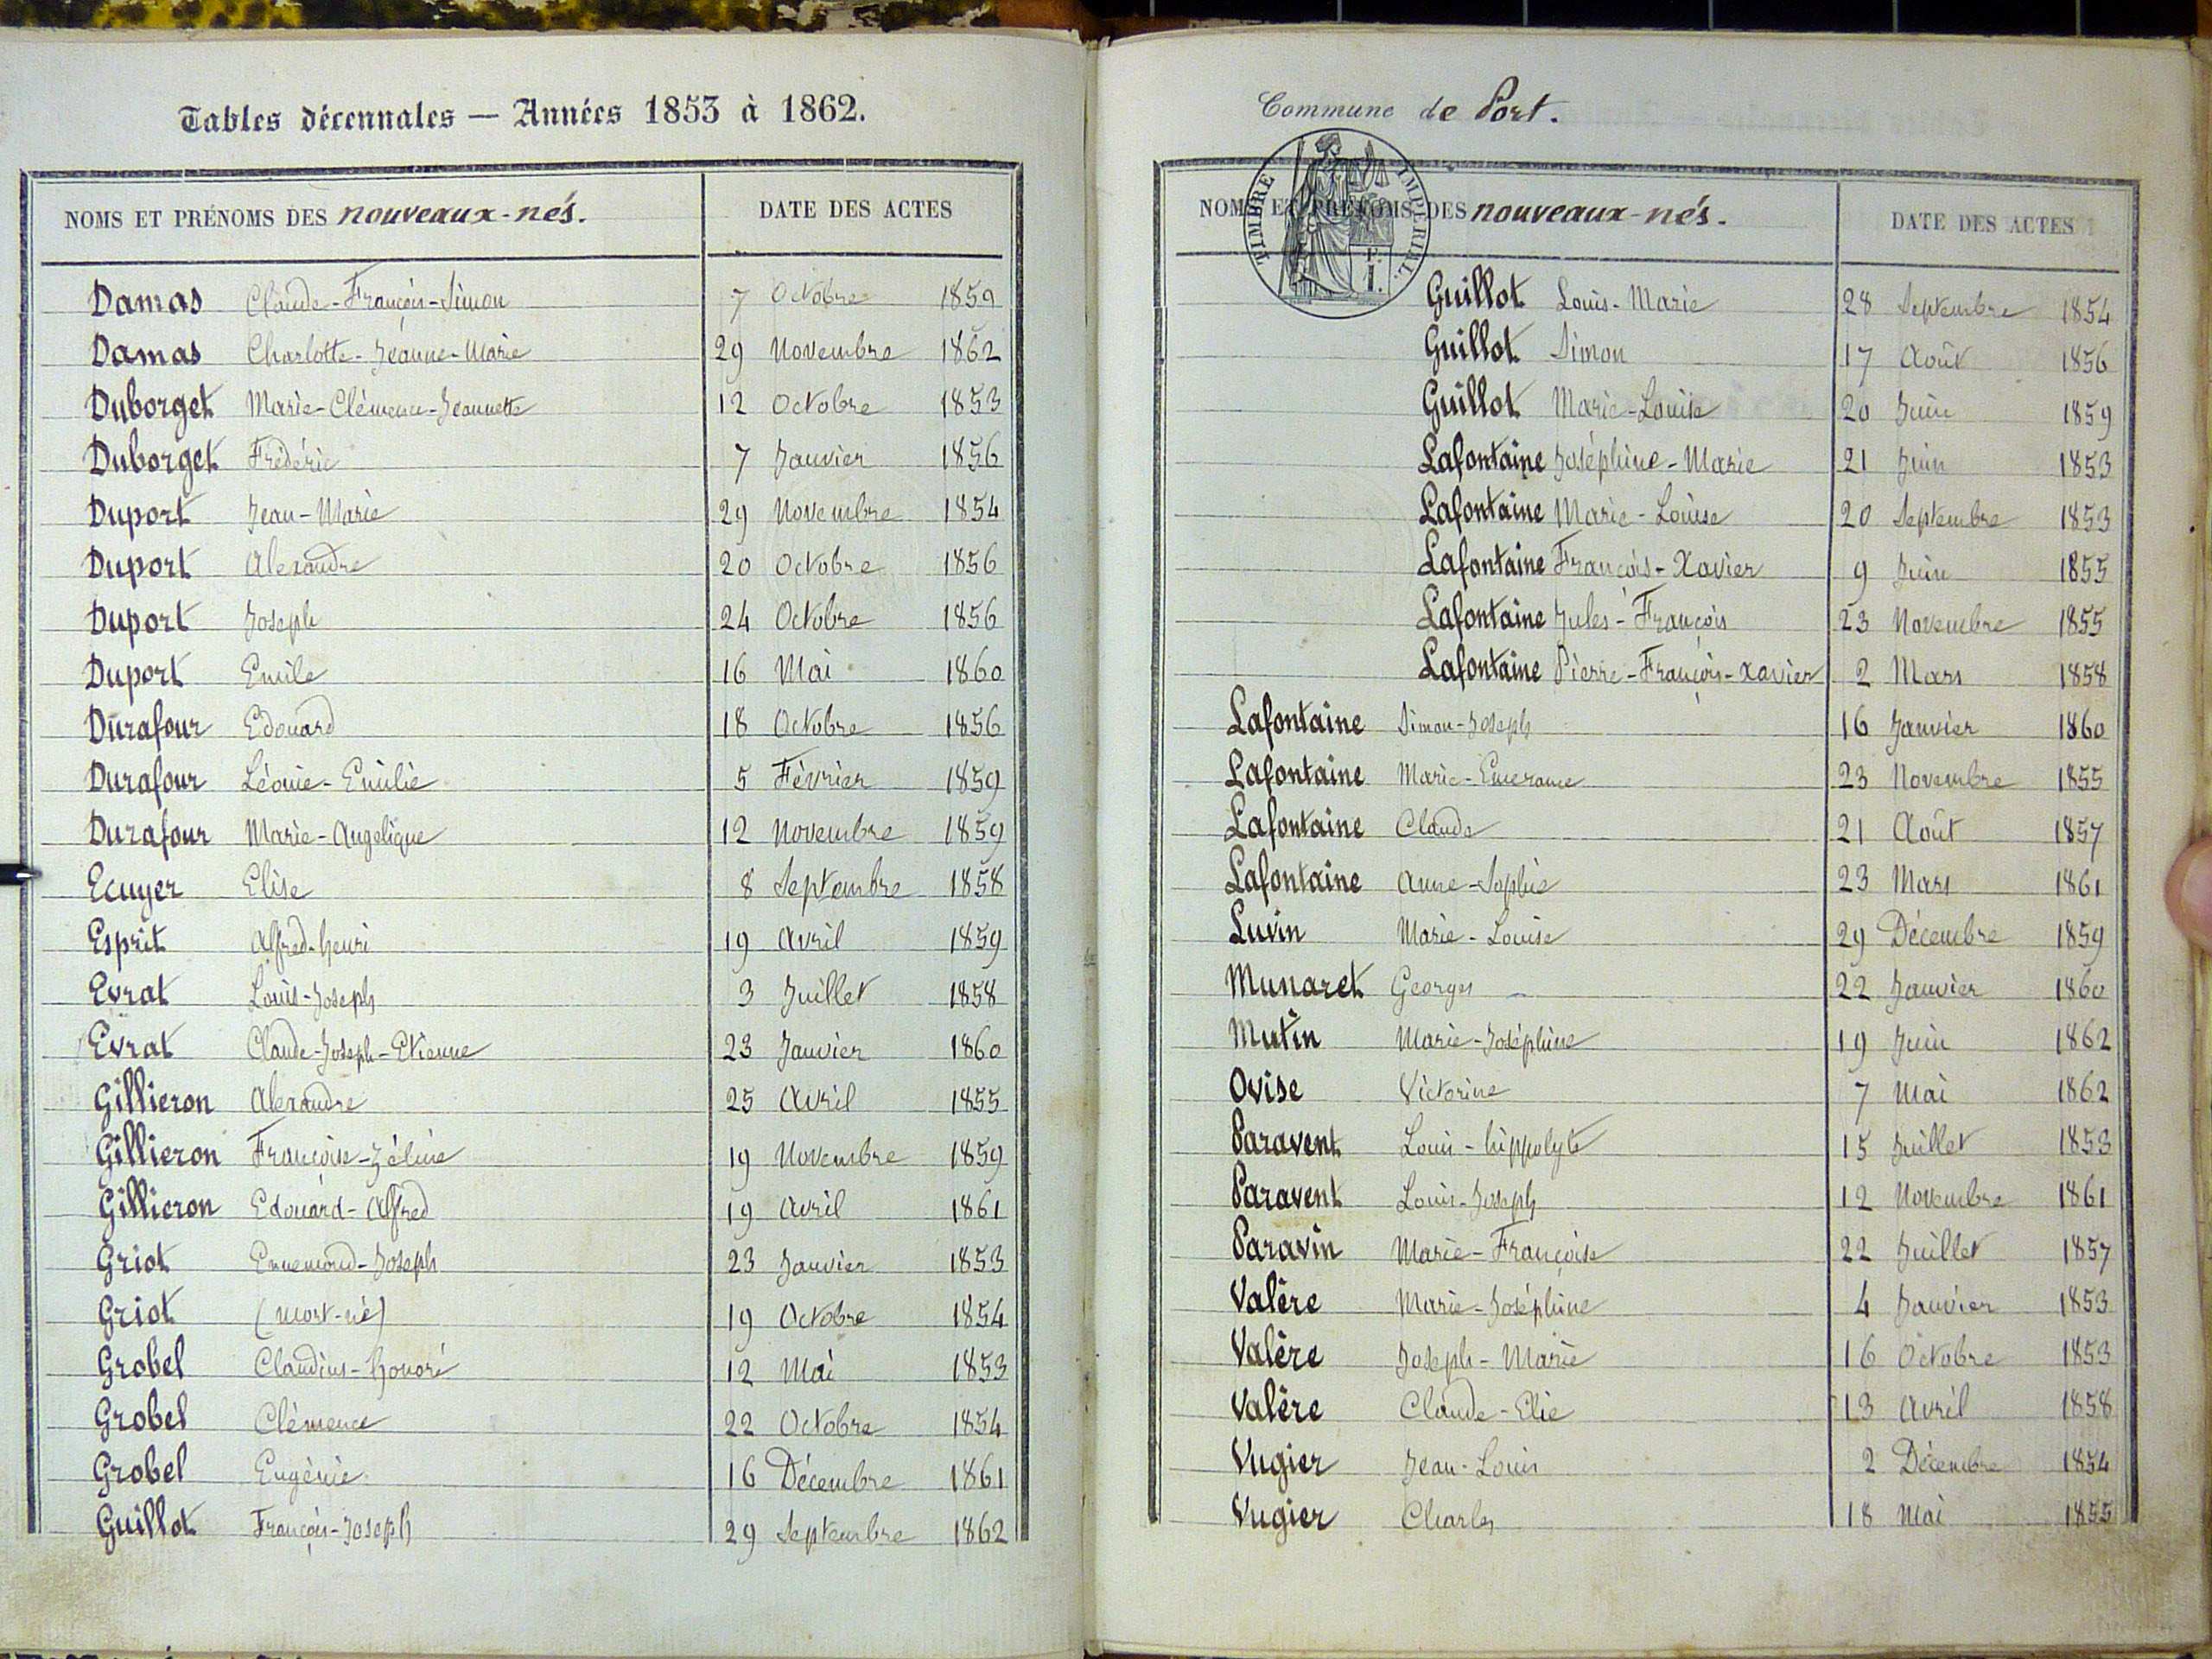 Tables décennales — Années 1853 à 1862.
NOMS ET PRÉNOMS DES nouveaux-nés. DATE DES ACTES
Damas Claude-François-Simon 7 Octobre 1859
Damas Charlotte-Jeanne-Marie 29 Novembre 1862
Duborget Marie-Clémence-Jeannette 12 Octobre 1853
Duborget Frédéric 7 Janvier 1856
Duport Jean-Marie 29 Novembre 1854
Duport Alexandre 20 Octobre 1856
Duport Joseph 24 Octobre 1856
Duport Emile 16 Mai 1860
Durafour Edouard 18 Octobre 1856
Durafour Léonie-Emilie 5 Février 1859
Durafour Marie-Angelique 12 Novembre 1859
Ecuyer Elise 8 Septembre 1858
Esprit Alfred-henri 19 Avril 1859
Evrat Louis-Joseph 3 Juillet 1858
Evrat Claude-Joseph-Etienne 23 Janvier 1860
Gillieron Alexandre 25 Avril 1855
Gillieron Françoise-Zéline 19 Novembre 1859
Gillieron Edouard-Alfred 19 Avril 1861
Griot Ennemond-Joseph 23 Janvier 1853
Griot (mort-né) 19 Octobre 1854
Grobel Claudius-honoré 12 Mai 1853
Grobel Clémence 22 Octobre 1854
Grobel Eugénie 16 Décembre 1861
Guillot François-Joseph 29 Septembre 1862
Commune de Port.
TIMBRE IMPÉRIAL.
NOMS ET PRÉNOMS DES nouveaux-nés. DATE DES ACTES
Guillot Louis-Marie 28 Septembre 1854
Guillot Simon 17 Août 1856
Guillot Marie-Louise 20 Juin 1859
Lafontaine Joséphine-Marie 21 Juin 1853
Lafontaine Marie-Louise 20 Septembre 1853
Lafontaine François-Xavier 9 Juin 1855
Lafontaine Jules-François 23 Novembre 1855
Lafontaine Pierre-François-Xavier 2 Mars 1858
Lafontaine Simon-Joseph 16 Janvier 1860
Lafontaine Marie-Emerance 23 Novembre 1855
Lafontaine Claude 21 Août 1857
Lafontaine Anne-Sophie 23 Mars 1861
Luvin Marie-Louise 29 Décembre 1859
Munaret Georges 22 Janvier 1860
Mutin Marie-Joséphine 19 Juin 1862
Ovise Victorine 7 Mai 1862
Paravent Louis-hippolyte 15 Juillet 1853
Paravent Louis-Joseph 12 Novembre 1861
Paravin Marie-Françoise 22 Juillet 1857
Valère Marie-Joséphine 4 Janvier 1853
Valère Joseph-Marie 16 Octobre 1853
Valère Claude-Elie 13 Avril 1858
Vugier Jean-Louis 2 Décembre 1854
Vugier Charles 18 Mai 1855